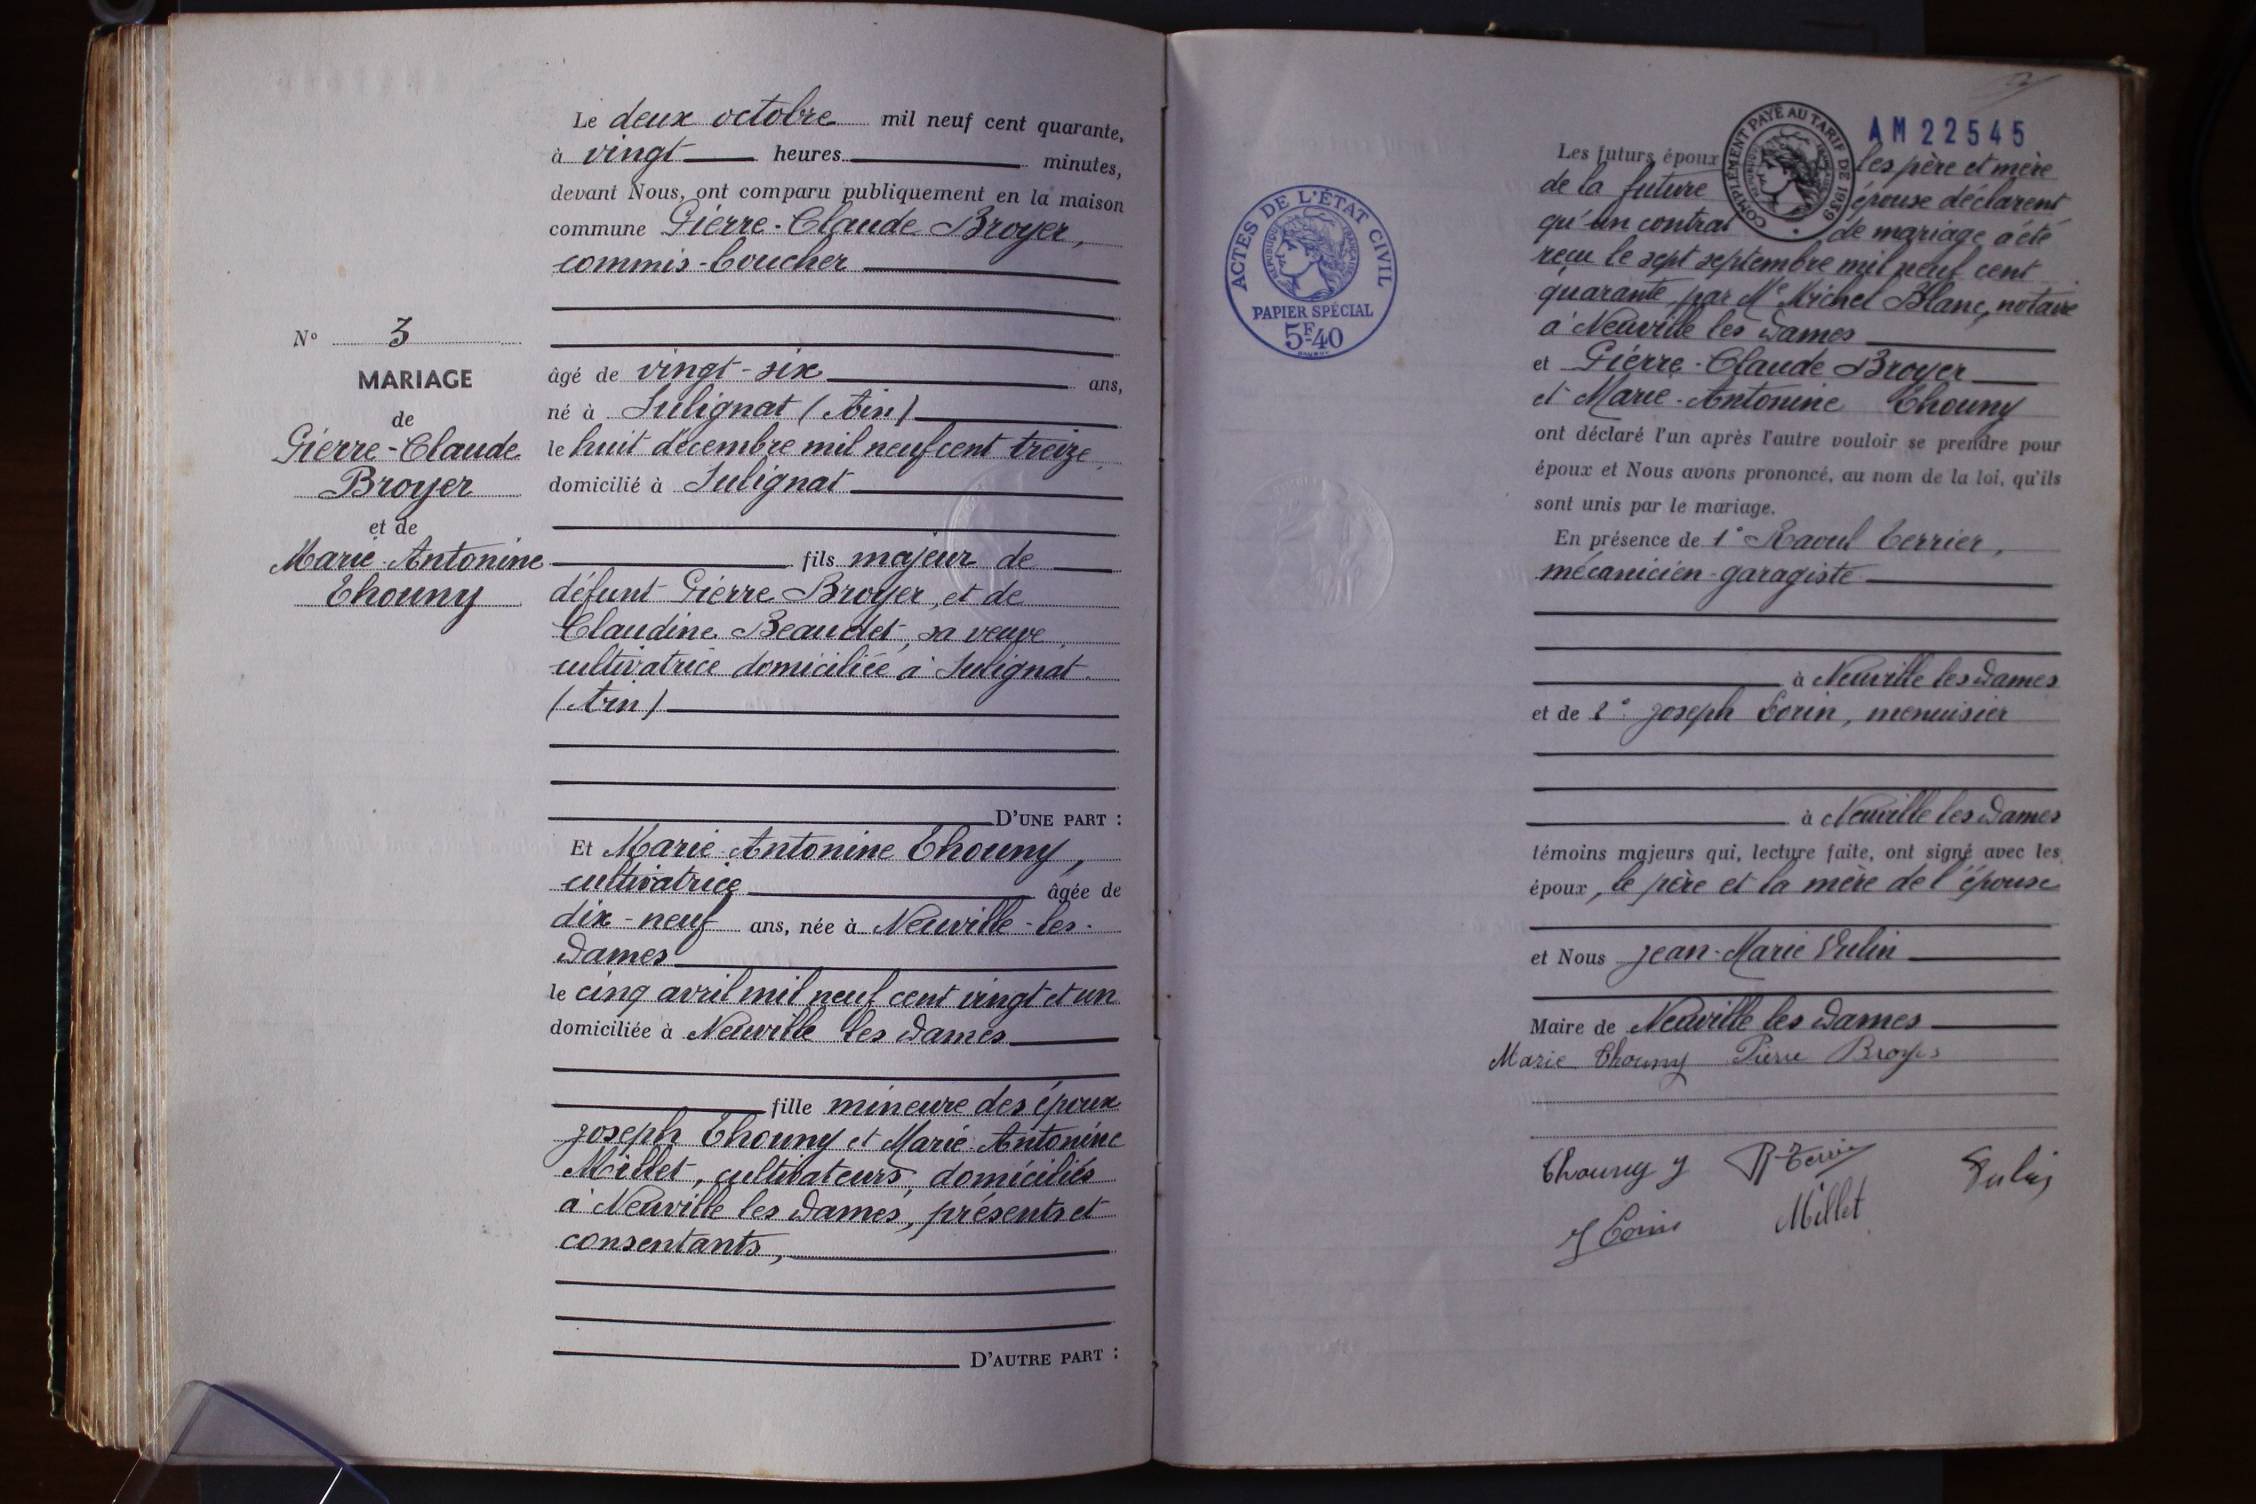 Le deux octobre mil neuf cent quarante,
à vingt heures minutes,
devant Nous, ont comparu publiquement en la maison
commune Pierre-Claude Broyer,
commis-boucher
N° 3
MARIAGE
de
Pierre-Claude
Broyer
et de
Marie-Antonine
Thouny
âgé de vingt-six ans,
né à Sulignat (Ain)
le huit décembre mil neuf cent treize,
domicilié à Sulignat
fils majeur de
défunt Pierre Broyer, et de
Claudine Beaudet, sa veuve,
cultivatrice domiciliée à Sulignat
(Ain)
D'UNE PART :
Et Marie-Antonine Thouny,
cultivatrice âgée de
dix-neuf ans, née à Neuville-les-
Dames
le cinq avril mil neuf cent vingt et un
domiciliée à Neuville les Dames
fille mineure des époux
Joseph Thouny et Marie-Antonine
Millet, cultivateurs, domiciliés
à Neuville les Dames, présents et
consentants,
D'AUTRE PART :
AM22545
COMPLÉMENT PAYÉ AU TARIF DE 1939
RÉPUBLIQUE FRANÇAISE
ACTES DE L'ÉTAT CIVIL
RÉPUBLIQUE FRANÇAISE
PAPIER SPÉCIAL
5F40
Les futurs époux les père et mère
de la future épouse déclarent
qu'un contrat de mariage a été
reçu le sept septembre mil neuf cent
quarante, par Me Michel Blanc, notaire
à Neuville les Dames
et Pierre-Claude Broyer
et Marie-Antonine Thouny
ont déclaré l'un après l'autre vouloir se prendre pour
époux et Nous avons prononcé, au nom de la loi, qu'ils
sont unis par le mariage.
En présence de 1° Raoul Terrier,
mécanicien-garagiste
à Neuville les Dames
et de 2° Joseph Lorin, menuisier
à Neuville les Dames
témoins majeurs qui, lecture faite, ont signé avec les
époux, le père et la mère de l'épouse
et Nous Jean-Marie Vulin
Maire de Neuville les Dames
Marie Thouny Pierre Broyer
Thouny J
Millet